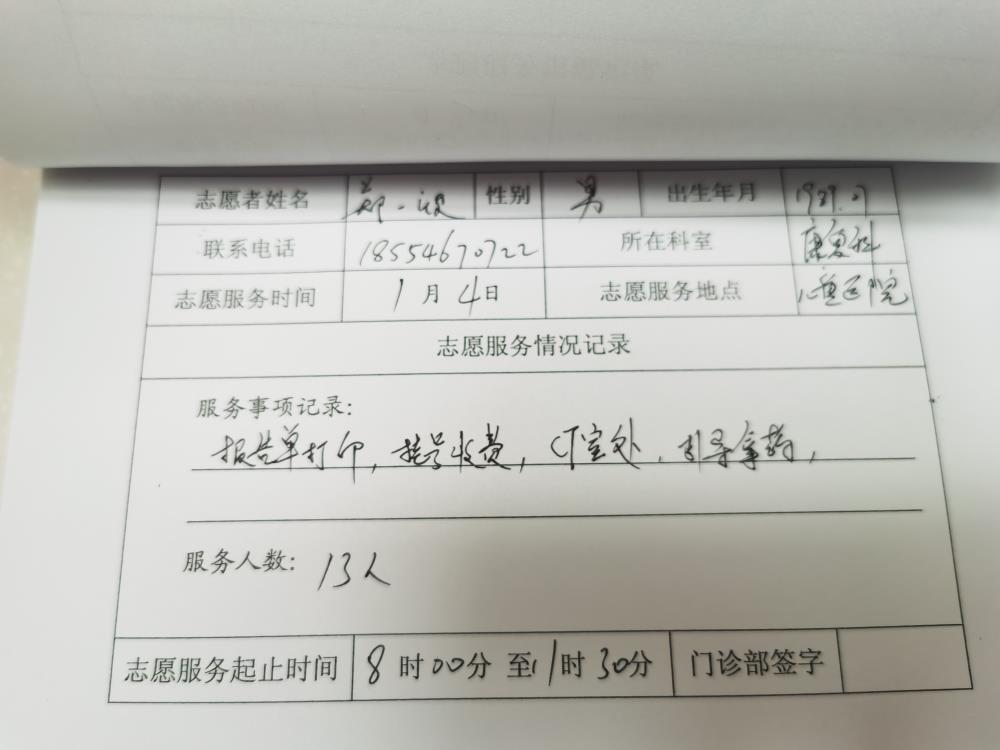 志愿者姓名 郑一 性别 男 出生年月 1989.7
联系电话 18554670722 所在科室 康复科
志愿服务时间 1月4日 志愿服务地点 儿童医院
志愿服务情况记录
服务事项记录:
报告单打印, 挂号收费, CT室处, 引导拿药,
服务人数: 13人
志愿服务起止时间 8时00分至11时30分 门诊部签字